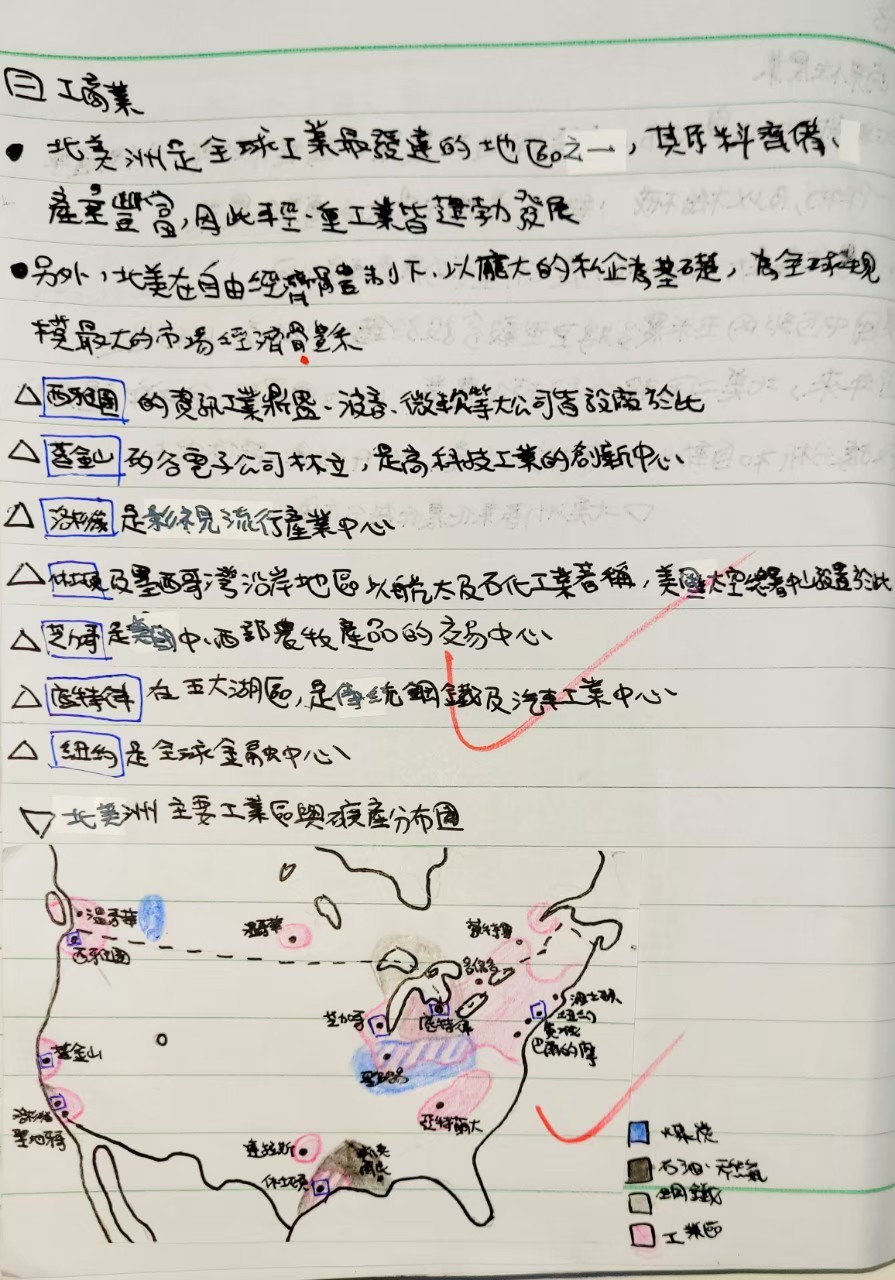 三 工商業
• 北美洲是全球工業最發達的地區之一，其原料齊備、
產量豐富，因此輕、重工業皆蓬勃發展
• 另外，北美在自由經濟體制下，以龐大的私企為基礎，為全球規
模最大的市場經濟體系
△ 西雅圖 的資訊工業鼎盛、波音、微軟等大公司皆設廠於此
△ 舊金山 矽谷電子公司林立，是高科技工業的創新中心
△ 洛杉磯 是影視流行產業中心
△ 休士頓 及墨西哥灣沿岸地區以航太及石化工業著稱，美國太空總署中心設置於此
△ 芝加哥 是美國中、西部農牧產品的交易中心
△ 底特律 在五大湖區，是傳統鋼鐵及汽車工業中心
△ 紐約 是全球金融中心
▽ 北美洲主要工業區與礦產分布圖
溫哥華
溫哥華
蒙特婁
西雅圖
多倫多
波士頓
紐約
費城
巴爾的摩
芝加哥
底特律
舊金山
聖路易
洛杉磯
聖地牙哥
亞特蘭大
達拉斯
紐奧
爾良
休士頓
煤炭
石油、天然氣
鋼鐵
工業區